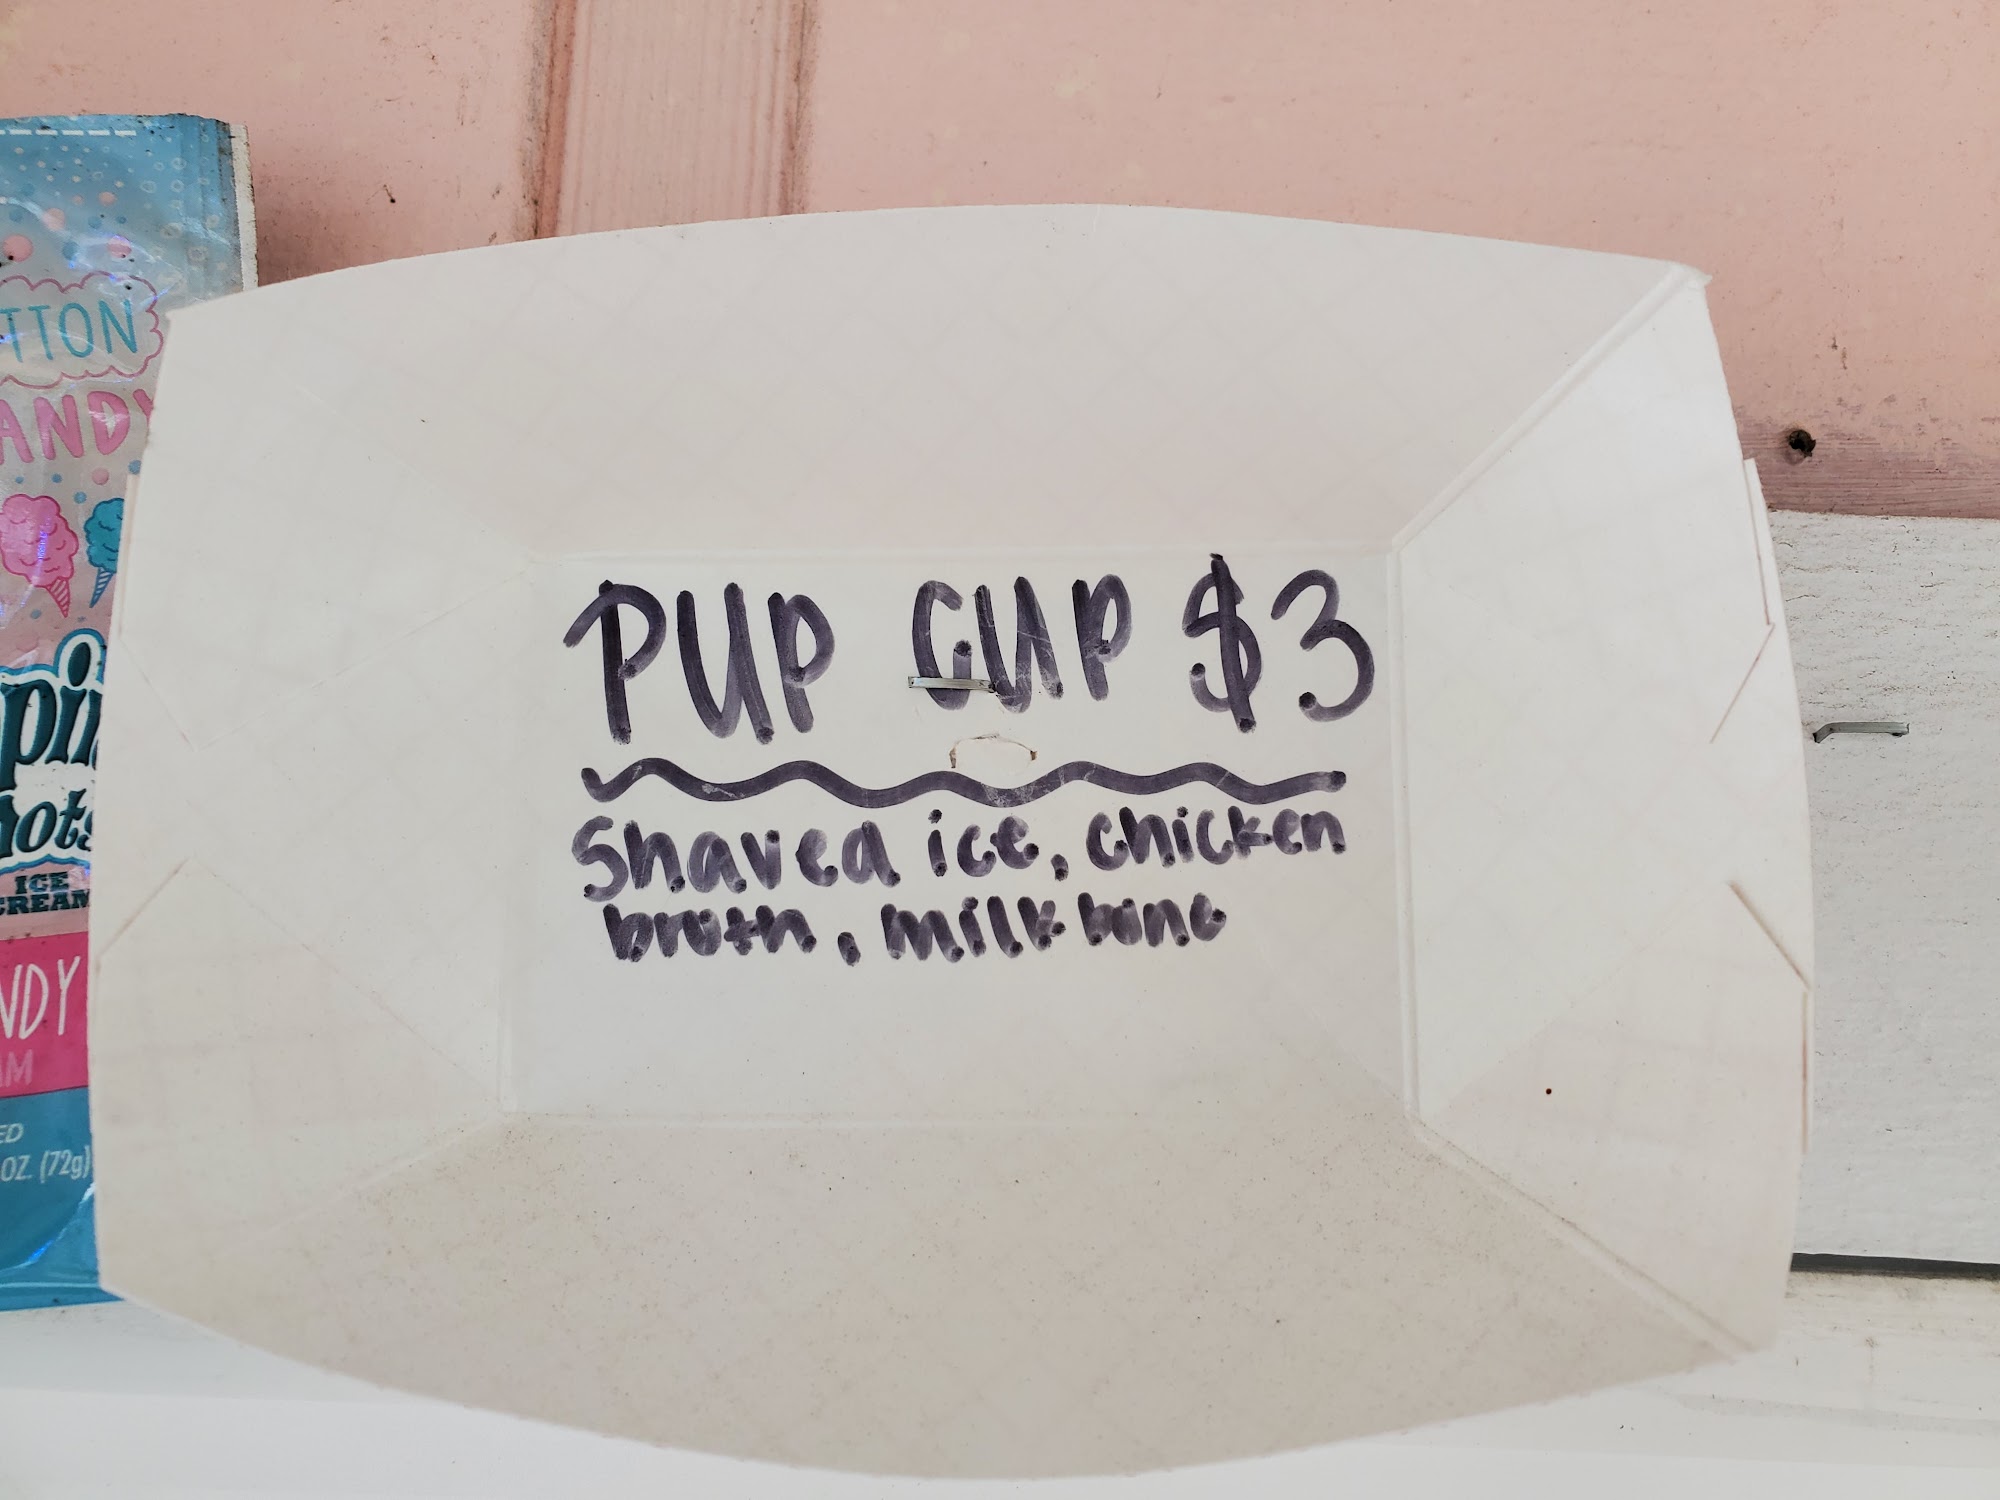 TTON
ANDY
ICE
CREAM
NDY
AM
ED
OZ. (72g)
PUP CUP $3
Shaved ice, chicken
broth, milk bone